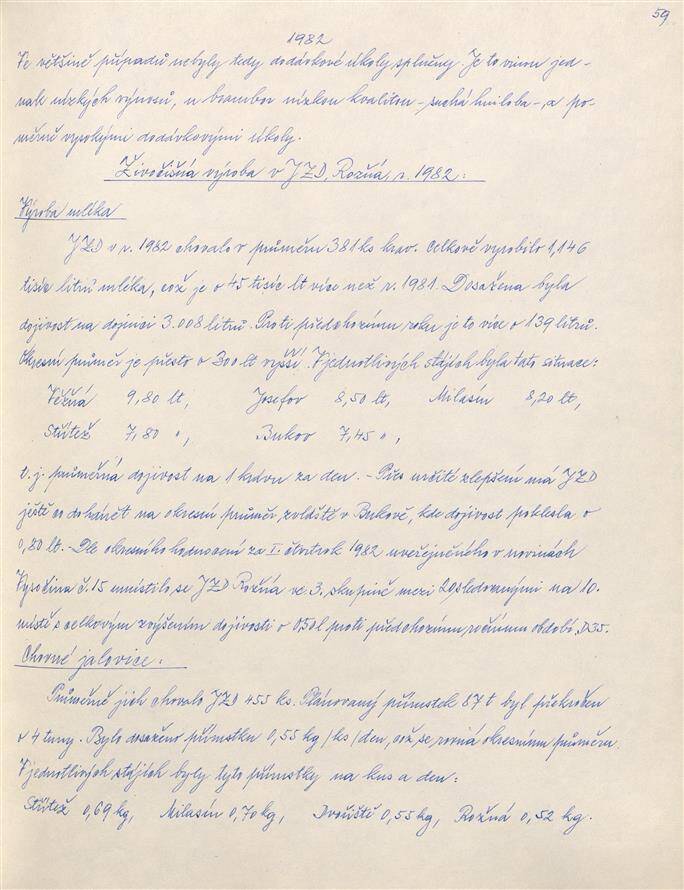 59
1982
Ve většině případů nebyly tedy dodávkové úkoly splněny. Je to vinou jed-
nak nízkých výnosů, u brambor nízkou kvalitou - suchá hniloba -, a po-
měrně vysokými dodávkovými úkoly.
Živočišná výroba v JZD, Rožná, r. 1982:
Výroba mléka
JZD v r. 1982 chovalo v průměru 381 ks krav. Celkově vyrobilo 1,146
tisíc litrů mléka, což je o 45 tisíc lt více než r. 1981. Dosažena byla
dojivost na dojnici 3.008 litrů. Proti předchozímu roku je to více o 139 litrů.
Okresní průměr je přesto o 300 lt vyšší. V jednotlivých stájích byla tato situace:
Věžná 9,80 lt, Josefov 8,50 lt, Milasín 8,20 lt,
Střítež 7,80 ", Bukov 7,45 ",
t. j. průměrná dojivost na 1 krávu za den. - Přes určité zlepšení má JZD
ještě co dohánět na okresní průměr, zvláště v Bukově, kde dojivost poklesla o
0,80 lt. - Dle okresního hodnocení za I. čtvrtrok 1982 uveřejněného v novinách
Vysočina č. 15 umístilo se JZD Rožná ve 3. skupině mezi 20 sledovanými na 10.
místě s celkovým zvýšením dojivosti o 0,50 l proti předchozímu ročnímu období. D35.
Chovné jalovice:
Průměrně jich chovalo JZD 455 ks. Plánovaný přírůstek 87 t byl překročen
o 4 tuny. Bylo dosaženo přírůstku 0,55 kg/ks/den, což se rovná okresnímu průměru.
V jednotlivých stájích byly tyto přírůstky na kus a den:
Střítež 0,69 kg, Milasín 0,70 kg, Dvořiště 0,55 kg, Rožná 0,52 kg.